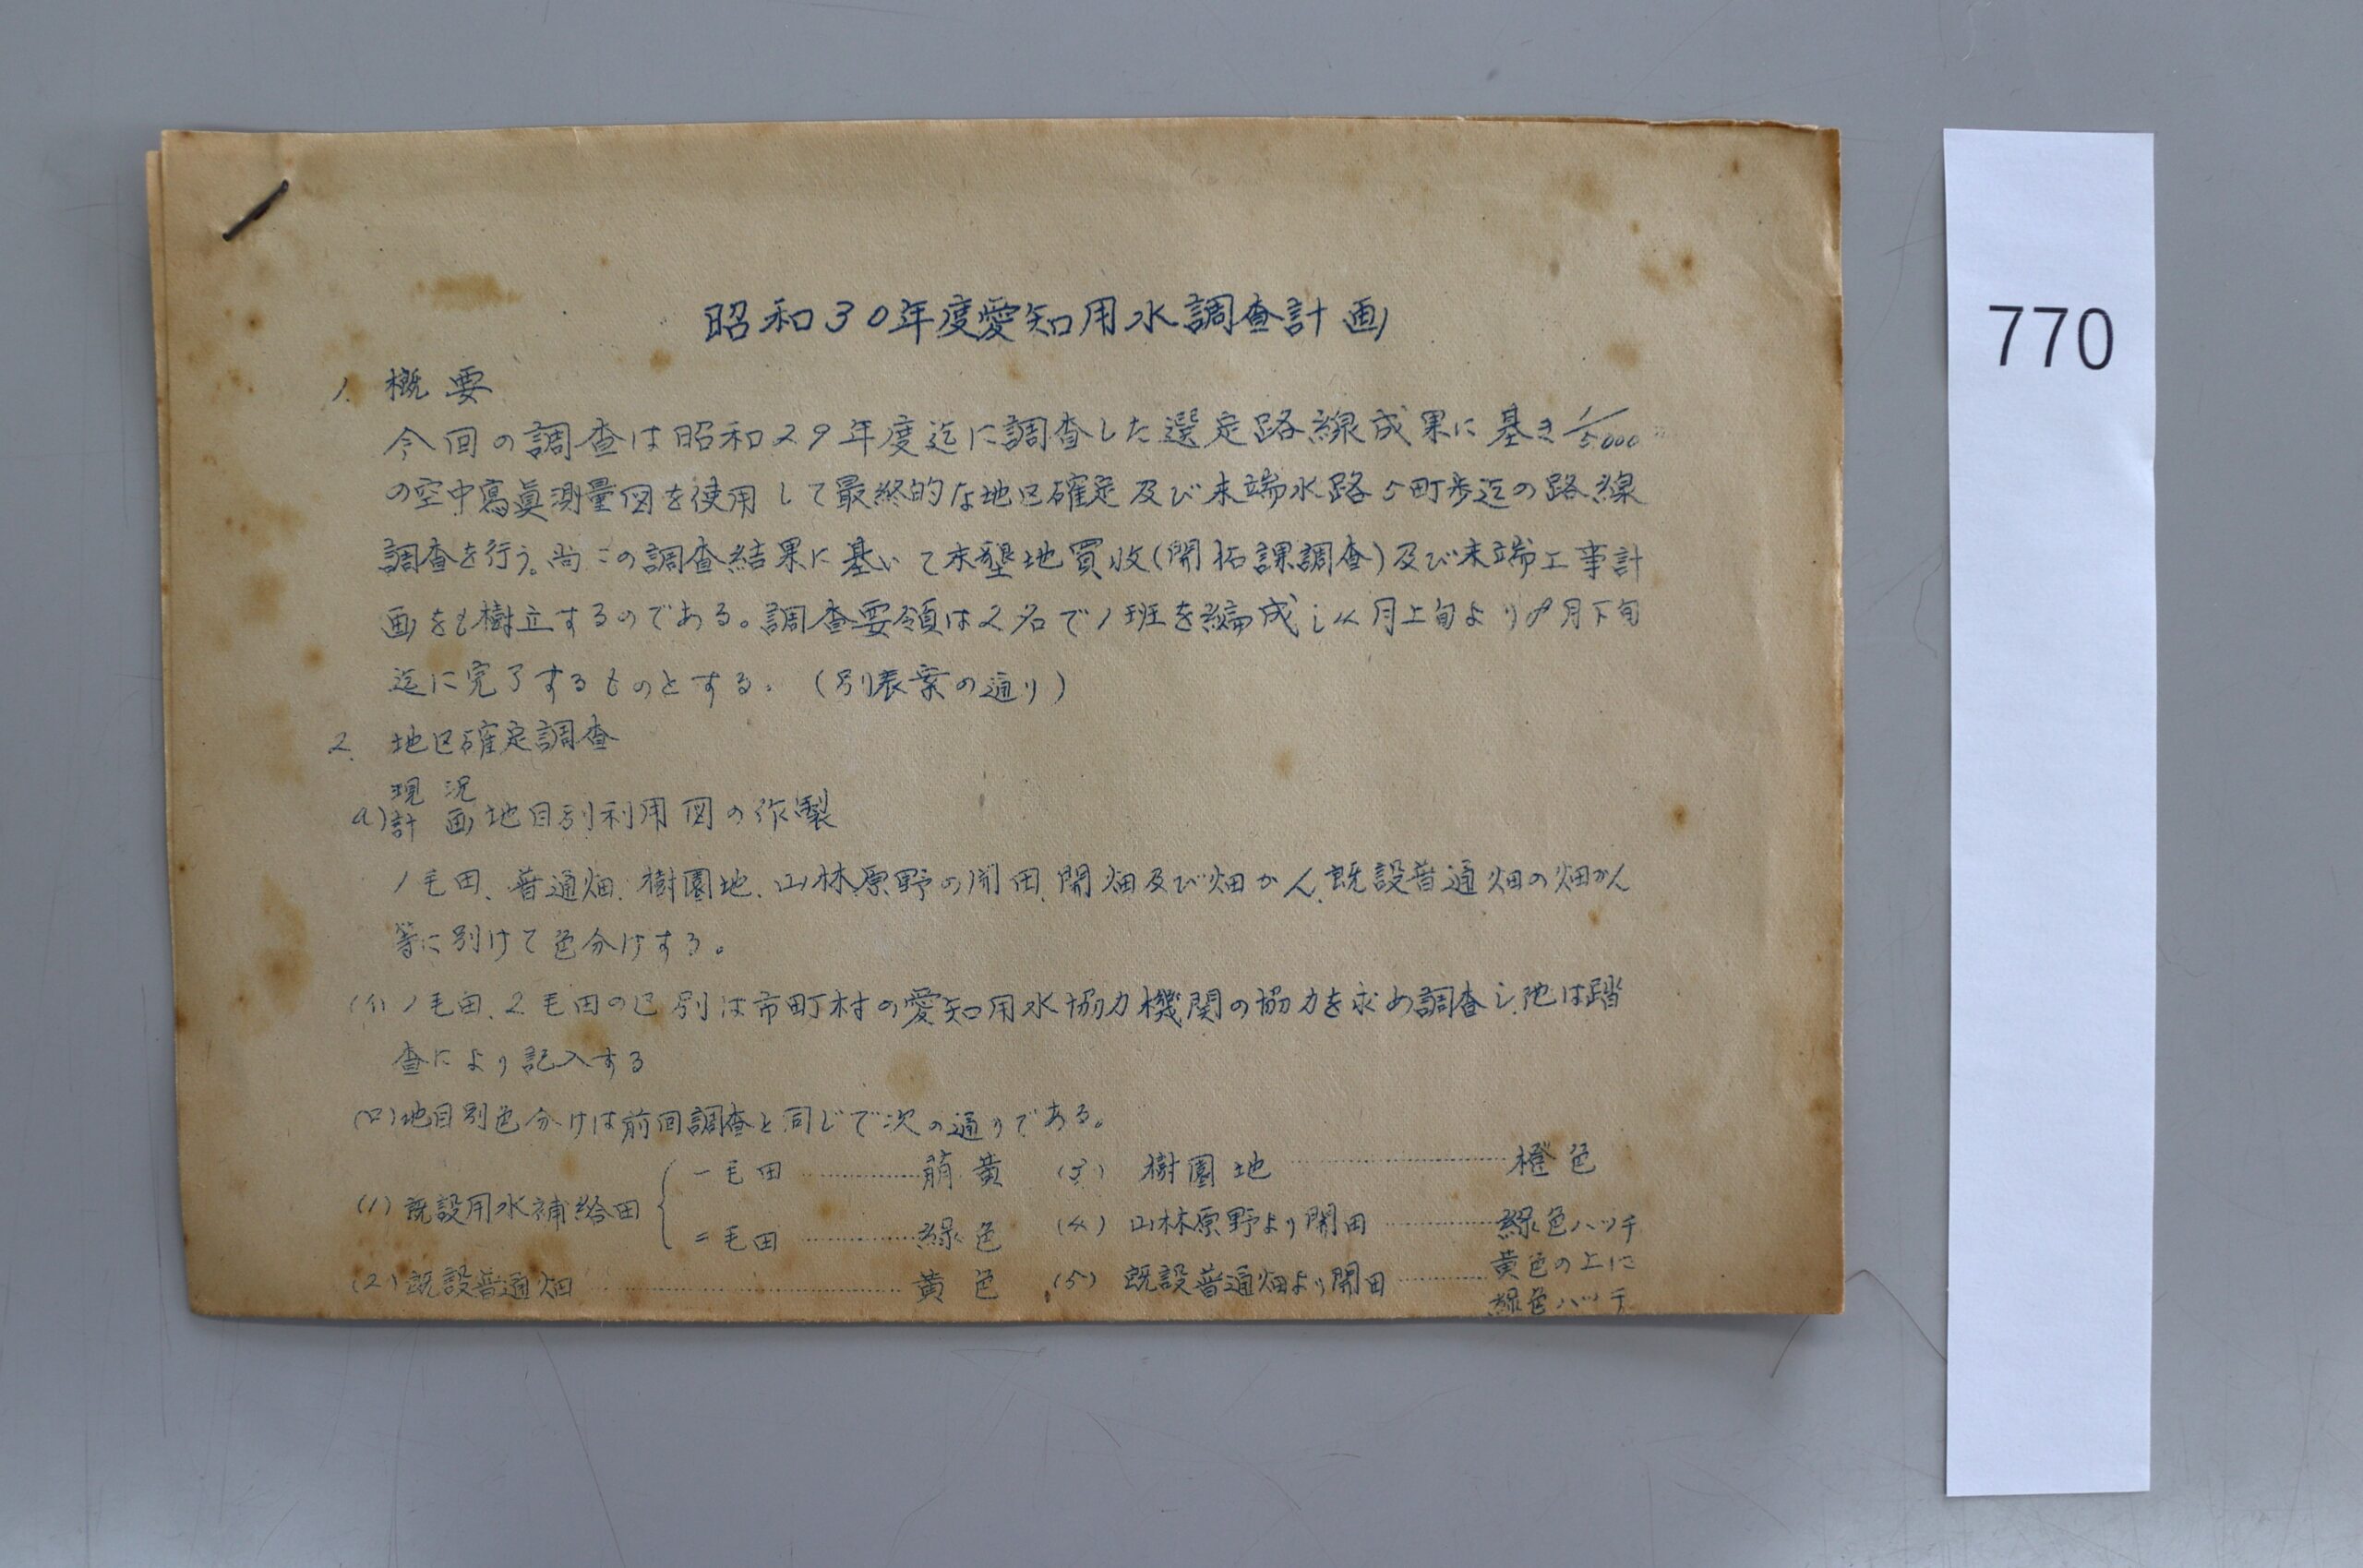 昭和30年度愛知用水調査計画
1. 概要
今回の調査は昭和29年度迄に調査した選定路線成果に基き1/5000
の空中寫眞測量図を使用して最終的な地区確定及び末端水路5町歩迄の路線
調査を行う。尚この調査結果に基いて未墾地買收(開拓課調査)及び末端工事計
画をも樹立するのである。調査要領は2名で1班を編成し4月上旬より8月下旬
迄に完了するものとする。(別表案の通り)
2. 地区確定調査
現況
a)計画地目別利用図の作製
1毛田、普通畑、樹園地、山林原野の開田、開畑及び畑かん、既設普通畑の畑かん
等に別けて色分けする。
(イ)1毛田、2毛田の区別は市町村の愛知用水協力機関の協力を求め調査し、他は踏
査により記入する
(ロ)地目別色分けは前回調査と同じで次の通りである。
(1)既設用水補給田 一毛田………萠黄
二毛田………緑色
(2)既設普通畑………黄色
(3) 樹園地………橙色
(4) 山林原野より開田………緑色ハッチ
(5) 既設普通畑より開田………黄色の上に
緑色ハッチ
770